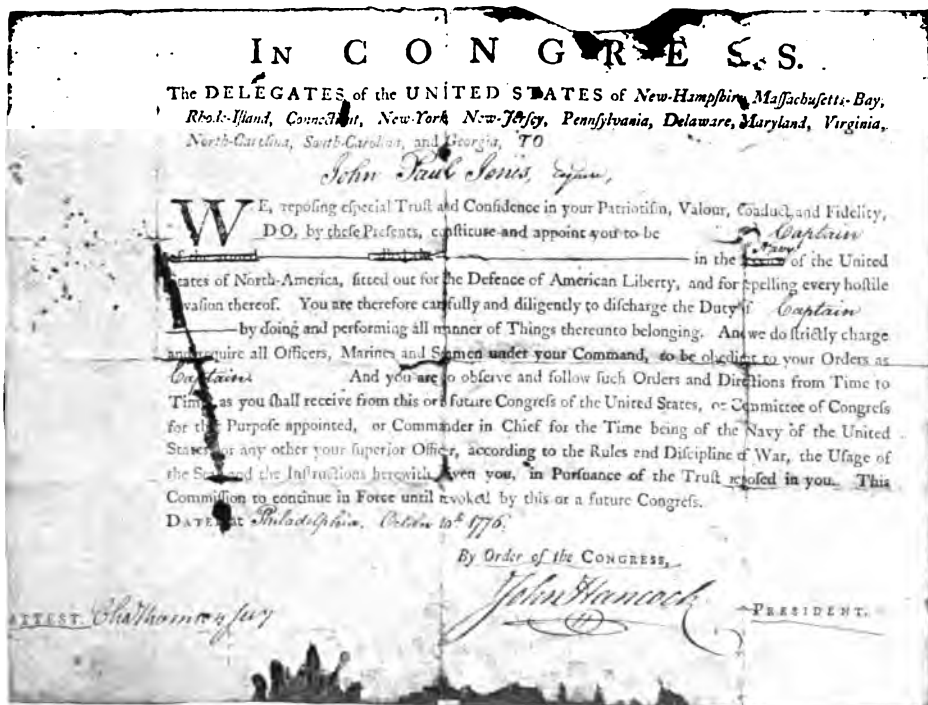 IN CONGRESS.
The DELEGATES of the UNITED STATES of New-Hampſhire, Maſſachuſetts-Bay,
Rhode-Iſland, Connecticut, New-York, New-Jerſey, Pennſylvania, Delaware, Maryland, Virginia,
North-Carolina, South-Carolina, and Georgia, TO
John Paul Jones, Eſquire,
WE, repoſing eſpecial Truſt and Confidence in your Patriotiſm, Valour, Conduct, and Fidelity,
DO, by theſe Preſents, conſtitute and appoint you to be Captain
Navy
in the of the United
States of North-America, fitted out for the Defence of American Liberty, and for repelling every hoſtile
Invaſion thereof. You are therefore carefully and diligently to diſcharge the Duty of Captain
by doing and performing all manner of Things thereunto belonging. And we do ſtrictly charge
and require all Officers, Marines and Seamen under your Command, to be obedient to your Orders as
Captain And you are to obſerve and follow ſuch Orders and Directions from Time to
Time as you ſhall receive from this or a future Congreſs of the United States, or Committee of Congreſs
for that Purpoſe appointed, or Commander in Chief for the Time being of the Navy of the United
States, or any other your ſuperior Officer, according to the Rules and Diſcipline of War, the Uſage of
the Sea, and the Inſtructions herewith given you, in Purſuance of the Truſt repoſed in you. This
Commiſſion to continue in Force until revoked by this or a future Congreſs.
DATED at Philadelphia, October 10th 1776.
By Order of the CONGRESS,
John Hancock PRESIDENT.
ATTEST. Cha Thomson ſecy